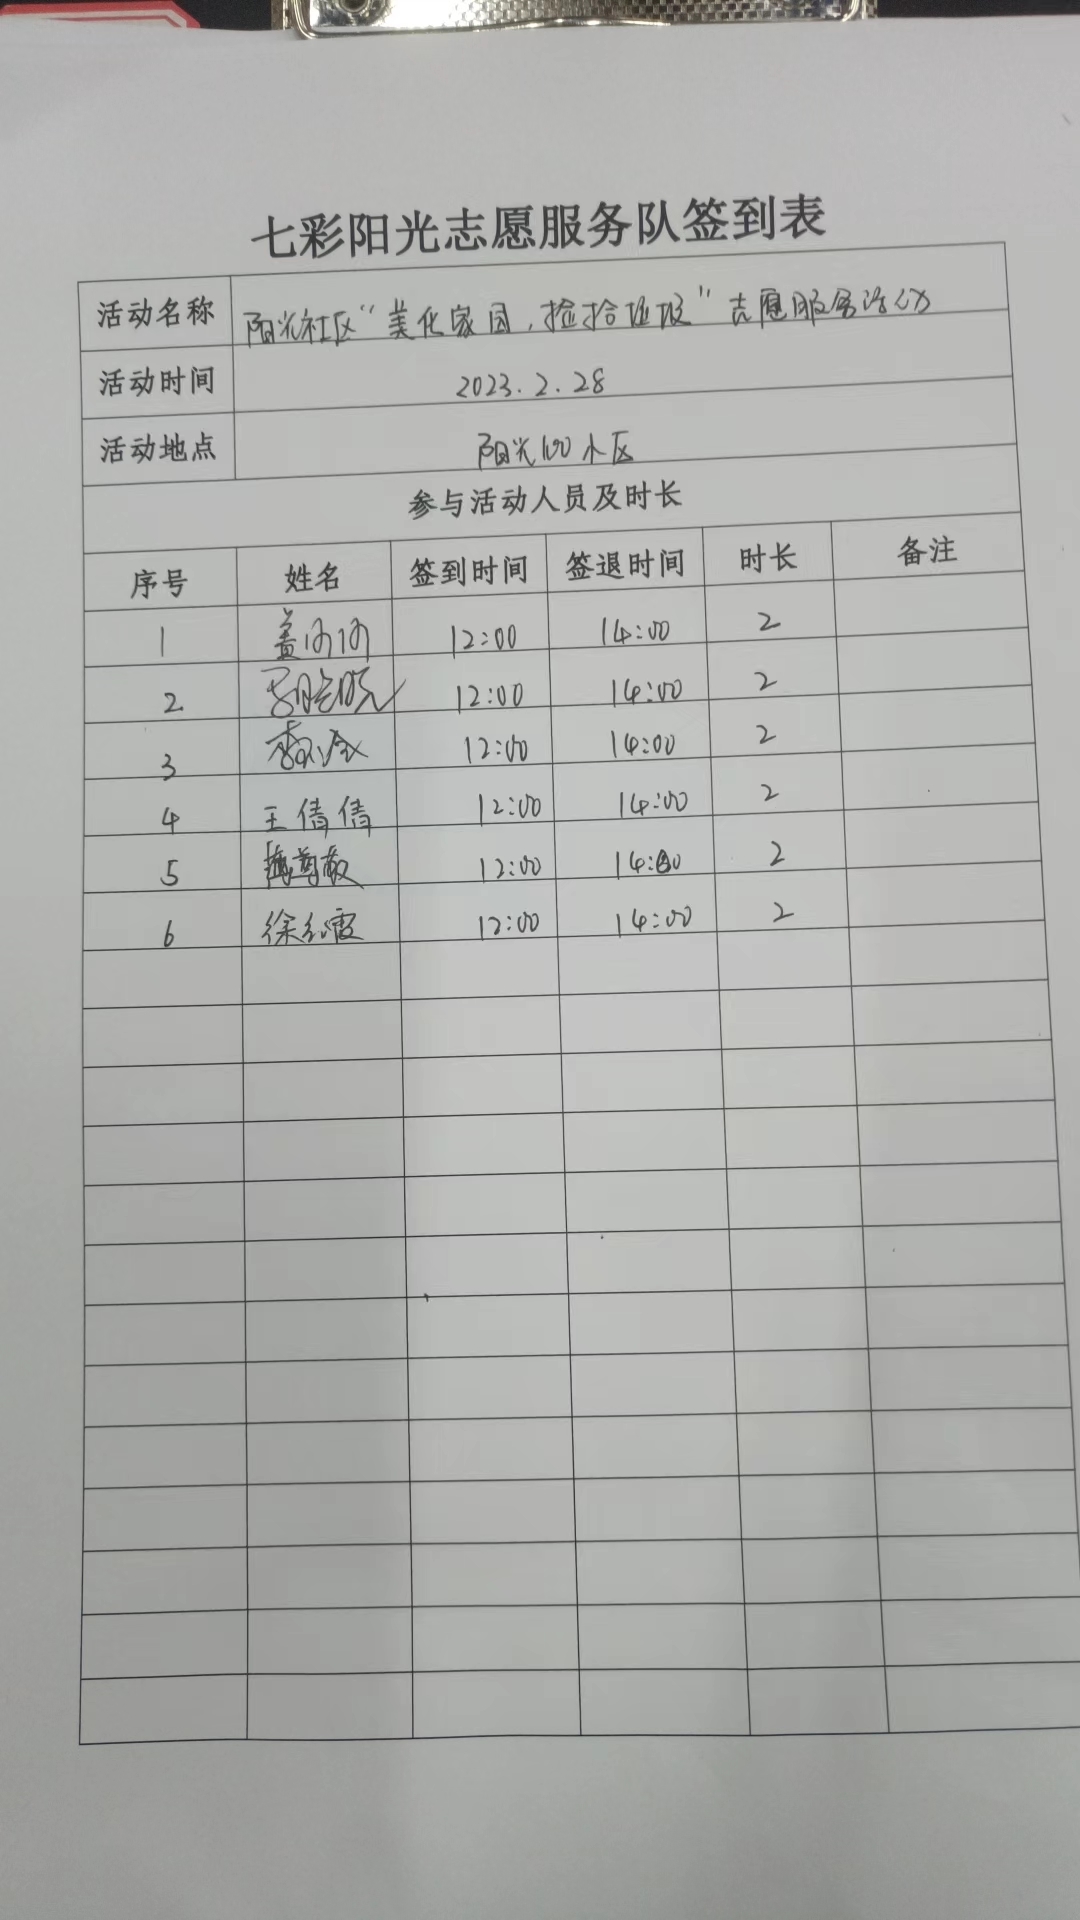 七彩阳光志愿服务队签到表
活动名称 阳光社区“美化家园，捡拾垃圾”志愿服务活动
活动时间 2023.2.28
活动地点 阳光100小区
参与活动人员及时长
序号 姓名 签到时间 签退时间 时长 备注
1 盖 12:00 14:00 2
2 12:00 14:00 2
3 12:00 14:00 2
4 王倩倩 12:00 14:00 2
5 尊敬 12:00 14:00 2
6 徐红霞 12:00 14:00 2